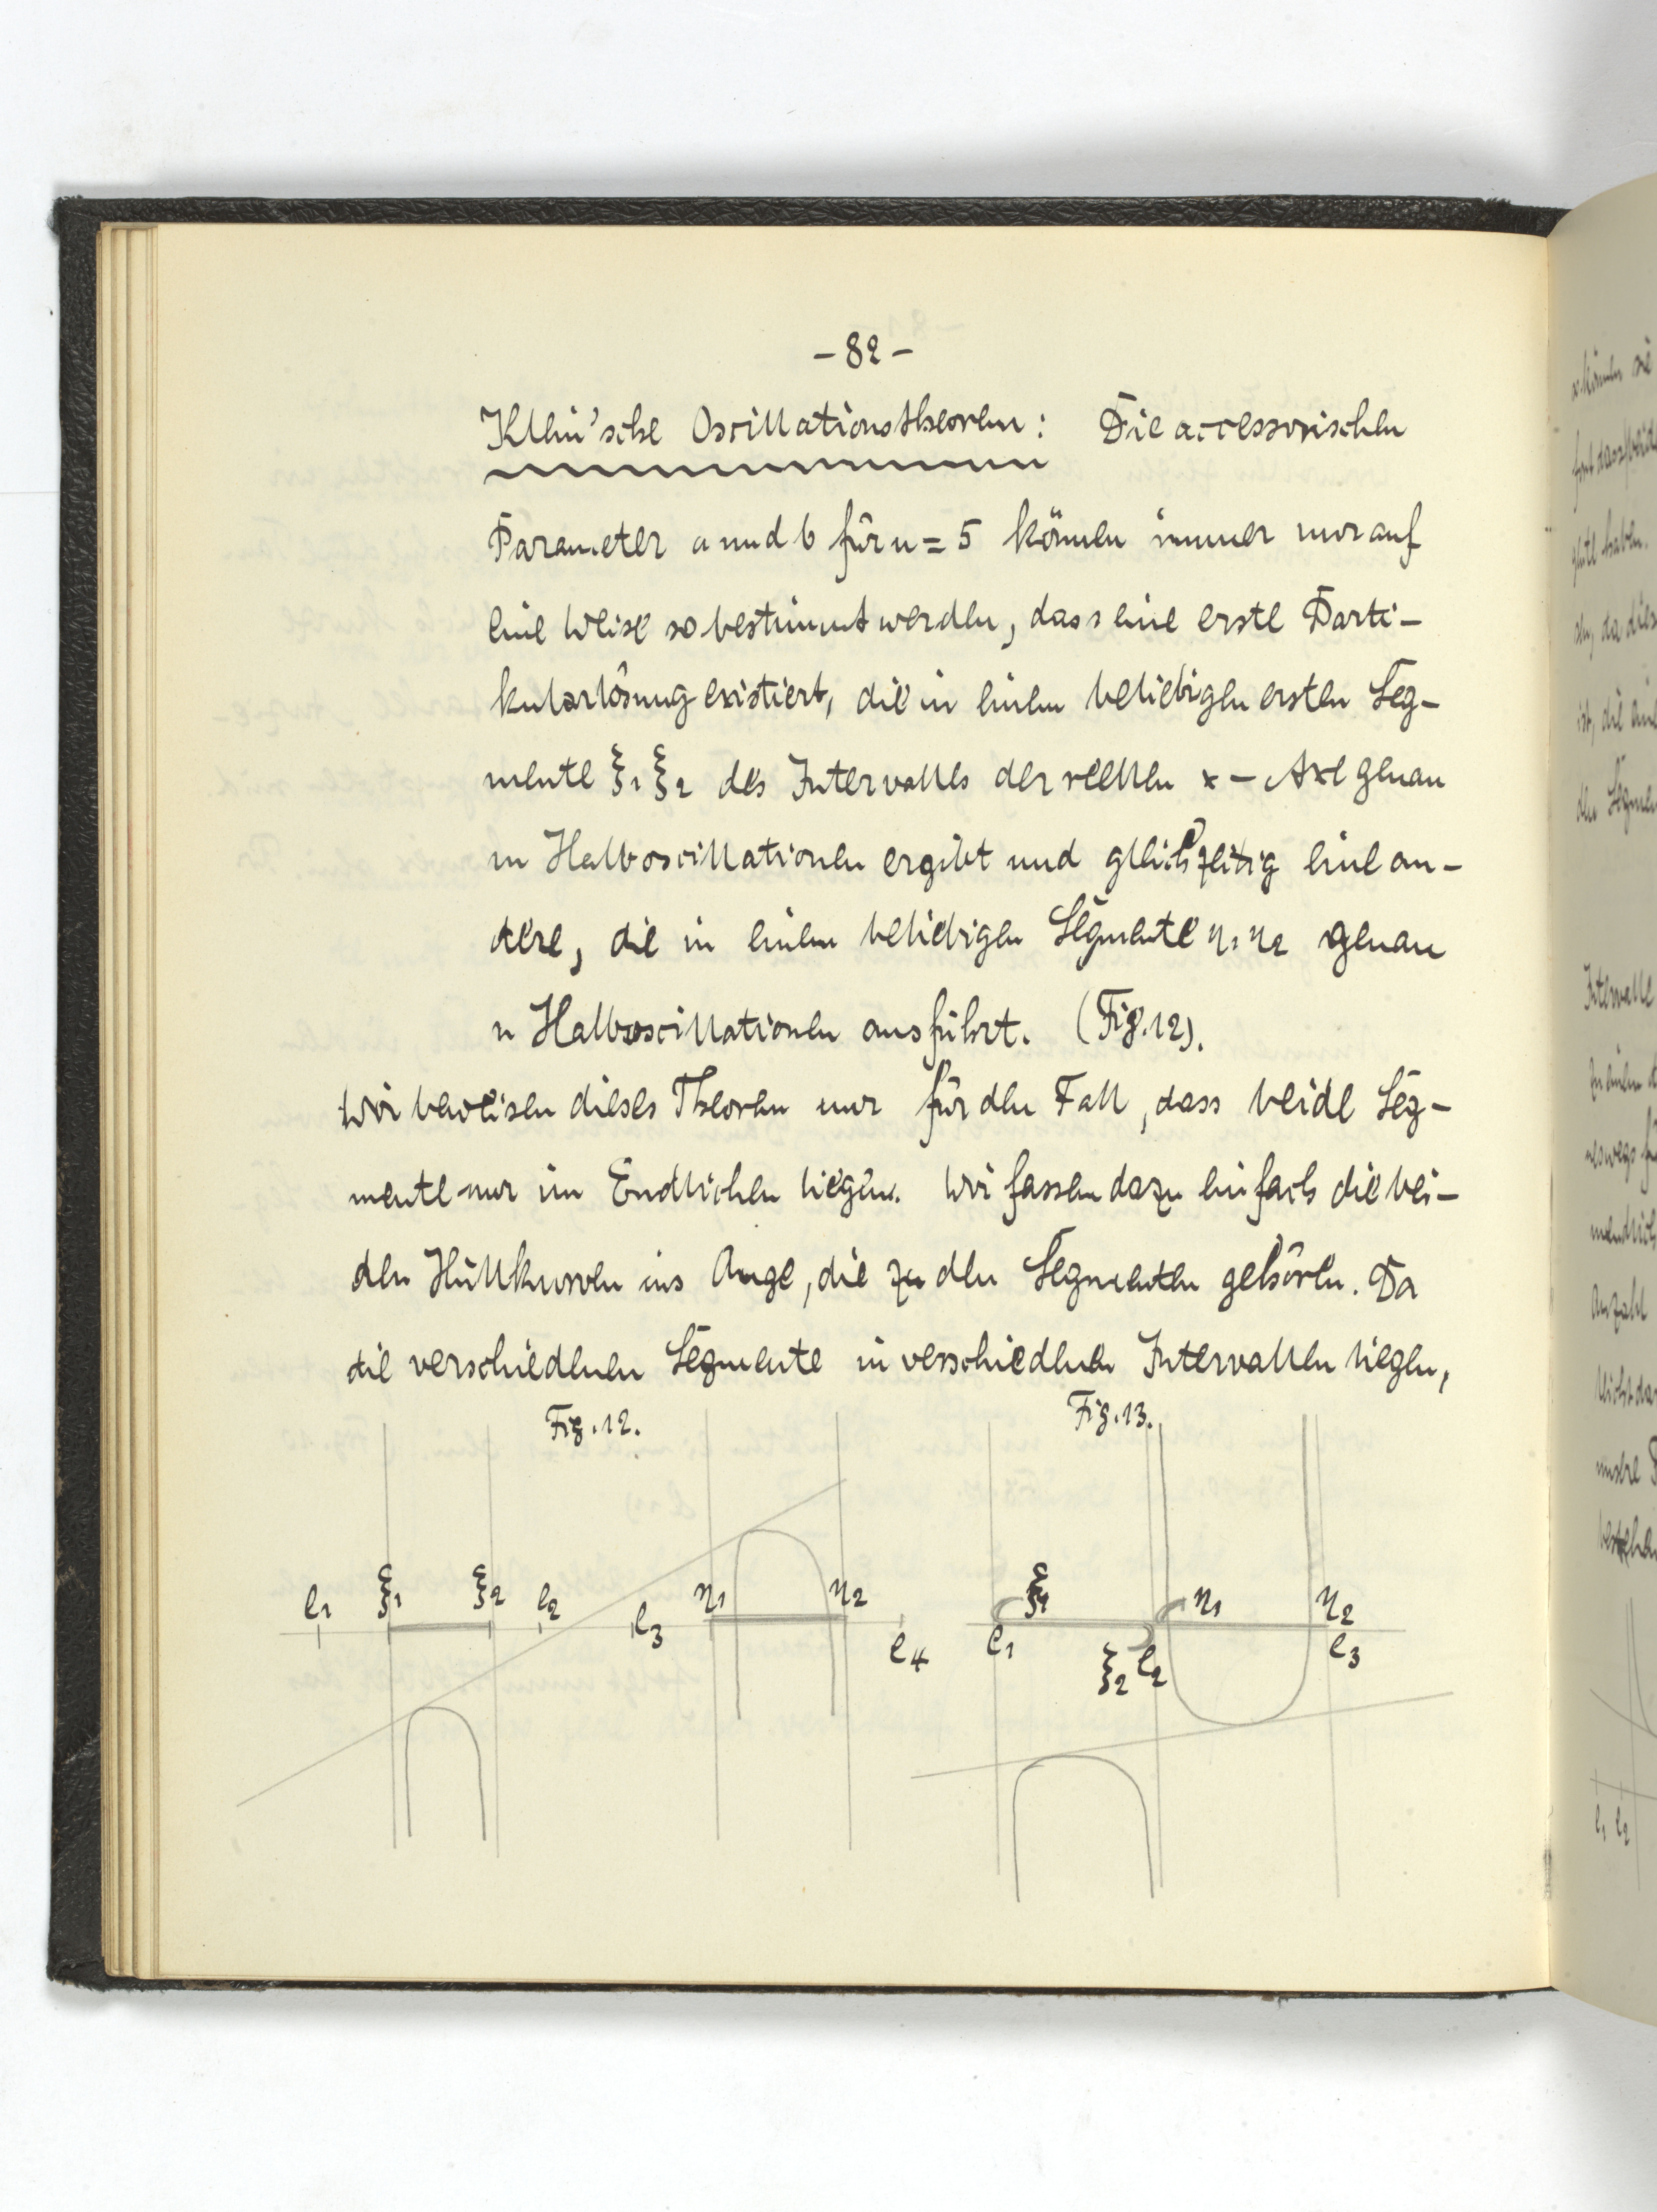 - 82 -
Klein'sche Oscillationstheorem: Die accessorischen
Parameter a und b für n = 5 können immer nur auf
eine Weise so bestimmt werden, dass eine erste Parti-
kularlösung existiert, die in einem beliebigen ersten Seg-
mente ξ1 ξ2 des Intervalles der reellen x - Axe genau
m Halboscillationen ergibt und gleichzeitig eine an-
dere, die in einem beliebigen Segmente η1 η2 genau
n Halboscillationen ausführt. (Fig. 12).
Wir beweisen dieses Theorem nur für den Fall, dass beide Seg-
mente nur im Endlichen liegen. Wir fassen dazu einfach die bei-
den Hüllkurven ins Auge, die zu den Segmenten gehören. Da
die verschiedenen Segmente in verschiedenen Intervallen liegen,
Fig. 12.
Fig. 13.
e1 ξ1 ξ2 e2 e3 η1 η2 e4
ξ1 η1 η2
e1 ξ2 e2 e3